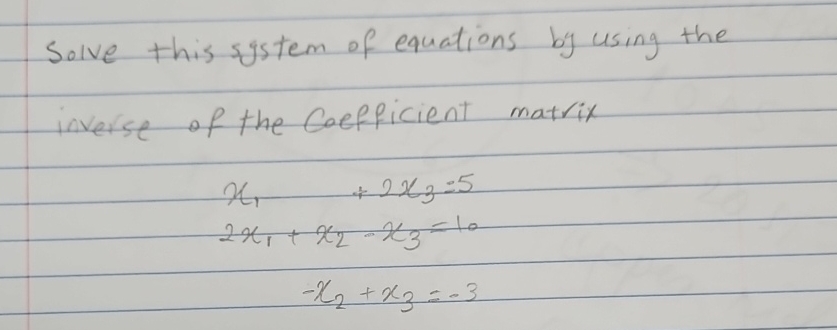 Solve this system of equations by using the
inverse of the Coefficient matrix
x₁ + 2x₃ = 5
2x₁ + x₂ - x₃ = 10
-x₂ + x₃ = -3